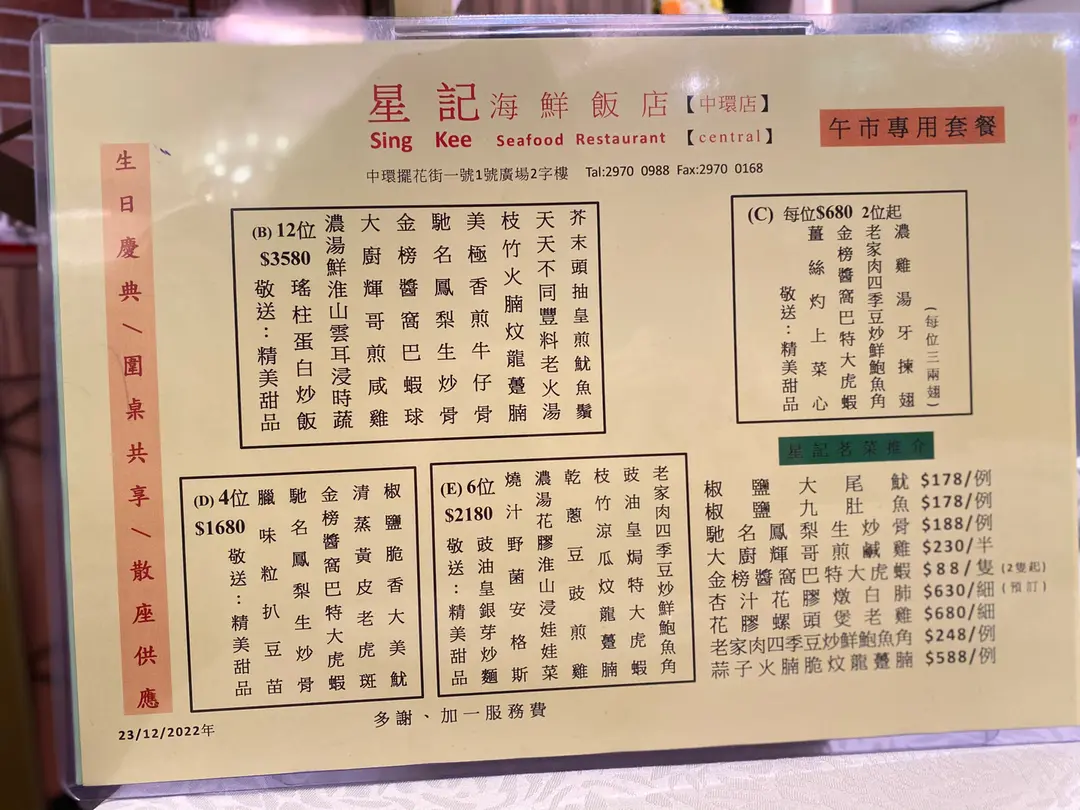 星記海鮮飯店【中環店】
Sing Kee Seafood Restaurant 【central】
午市專用套餐
中環擺花街一號1號廣場2字樓 Tel:2970 0988 Fax:2970 0168
生日慶典/圍桌共享/散座供應
(B) 12位
$3580
芥末頭抽皇煎魷魚鬚
天天不同豐料老火湯
枝竹火腩炆龍躉腩
美極香煎牛仔骨
馳名鳳梨生炒骨
金榜醬窩巴蝦球
大廚輝哥煎咸雞
濃湯鮮淮山雲耳浸時蔬
瑤柱蛋白炒飯
敬送：精美甜品
(C) 每位$680 2位起
(每位三兩翅)
濃雞湯牙揀翅
老家肉四季豆炒鮮鮑魚角
金榜醬窩巴特大虎蝦
薑絲灼上菜心
敬送：精美甜品
(D) 4位
$1680
椒鹽脆香大美魷
清蒸黃皮老虎斑
金榜醬窩巴特大虎蝦
馳名鳳梨生炒骨
臘味粒扒豆苗
敬送：精美甜品
(E) 6位
$2180
老家肉四季豆炒鮮鮑魚角
豉油皇焗特大虎蝦
枝竹涼瓜炆龍躉腩
乾蔥豆豉煎雞
濃湯花膠淮山浸娃娃菜
燒汁野菌安格斯
豉油皇銀芽炒麵
敬送：精美甜品
星記茗菜推介
椒鹽大尾魷 $178/例
椒鹽九肚魚 $178/例
馳名鳳梨生炒骨 $188/例
大廚輝哥煎鹹雞 $230/半
金榜醬窩巴特大虎蝦 $88/隻 (2隻起)
杏汁花膠燉白肺 $630/細 (預訂)
花膠螺頭煲老雞 $680/細
老家肉四季豆炒鮮鮑魚角 $248/例
蒜子火腩脆炆龍躉腩 $588/例
多謝、加一服務費
23/12/2022年